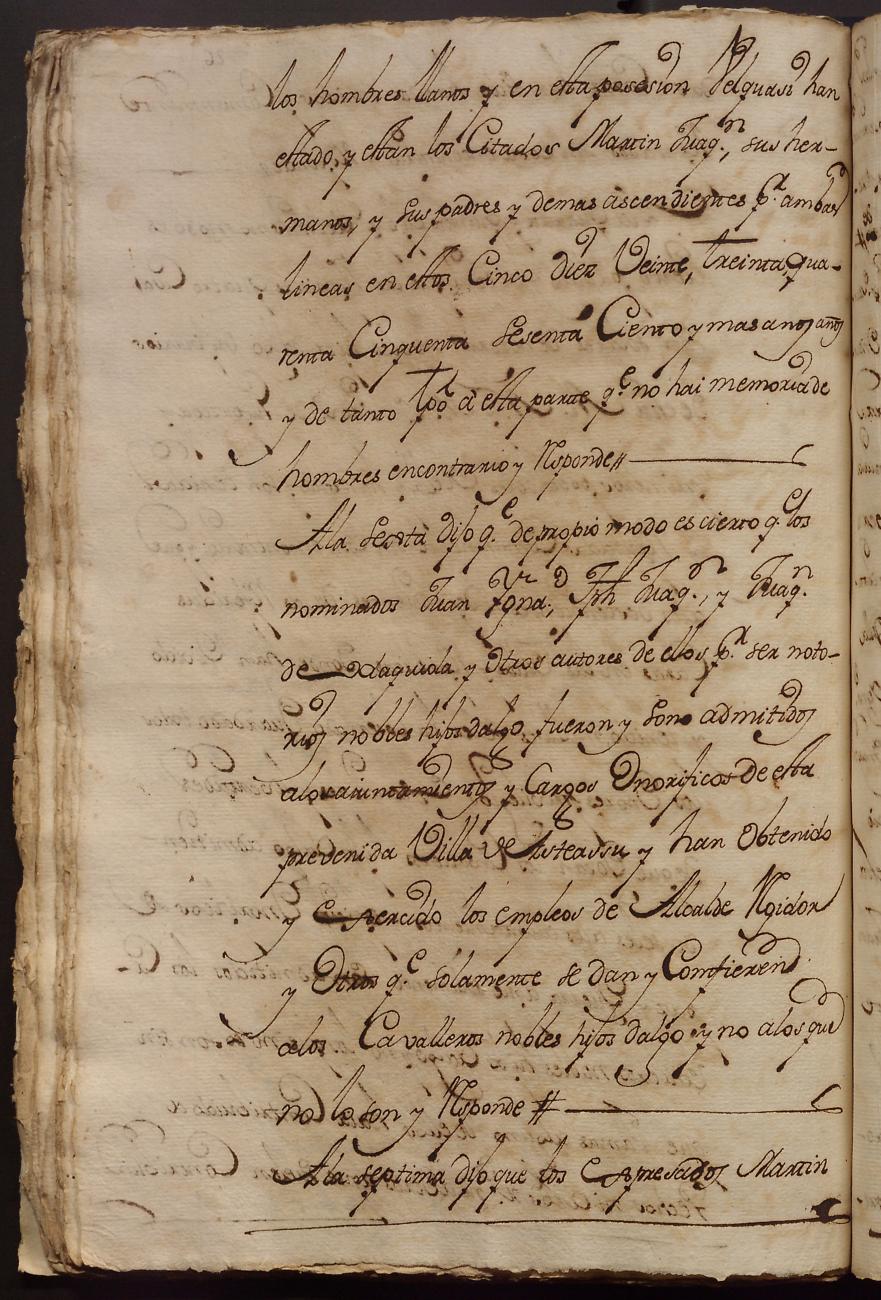 los hombres llanos y en esta posesion Velquasi han
estado, y estan los Citados Martin Juaqn, sus her-
manos, y sus padres y demas ascendientes pr ambas
lineas en estos Cinco diez Veinte, treinta, qua-
renta Cinquenta Sesenta Ciento y mas anos años
y de tanto tpo a esta parte qe no hai memoria de
hombres encontrario y Rsponde//
Ala Sesta dijo qe de propio modo es cierto qe los
nominados Juan Ygna, Jph Juaqn, y Juaqn
de y Otros autores de ellos pr ser noto-
rios nobles hijos dalgo, fueron y son admitidos
alos aiuntamientos y Cargos Onorificos de esta
prevenida Villa de Asteassu y han Obtenido
y exercido los empleos de Alcalde Rgidor
y Otros qe solamente se dan y Comfieren
alos Cavalleros nobles hijos dalgo y no alos que
no lo son y Rsponde //
Ala septima dijo que los Expresados Martin